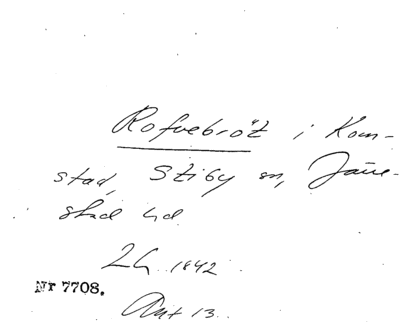 Rofvebröt i Kom-
stad, Stiby sn, Järre-
stad hd
LL 1842
Nr 7708.
Akt 13.